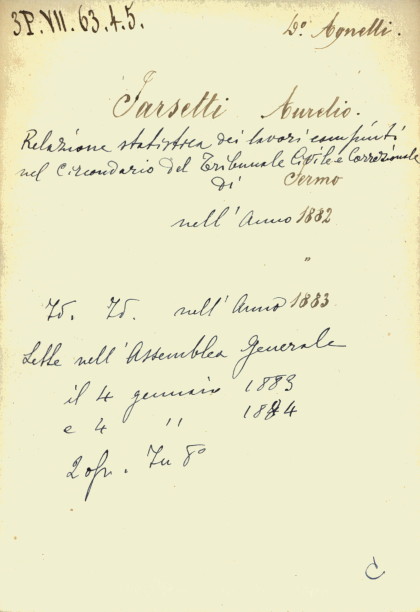 3P.VII.63.4.5.
Dº. Agnelli.
Tarsetti Aurelio.
Relazione statistica dei lavori compiuti
nel Circondario del Tribunale Civile e Correzionale
di Fermo
nell'Anno 1882
"
Id. Id. nell'Anno 1883
Lette nell'Assemblea Generale
il 4 gennaio 1883
e 4 " 1884
2 op. In 8º
C